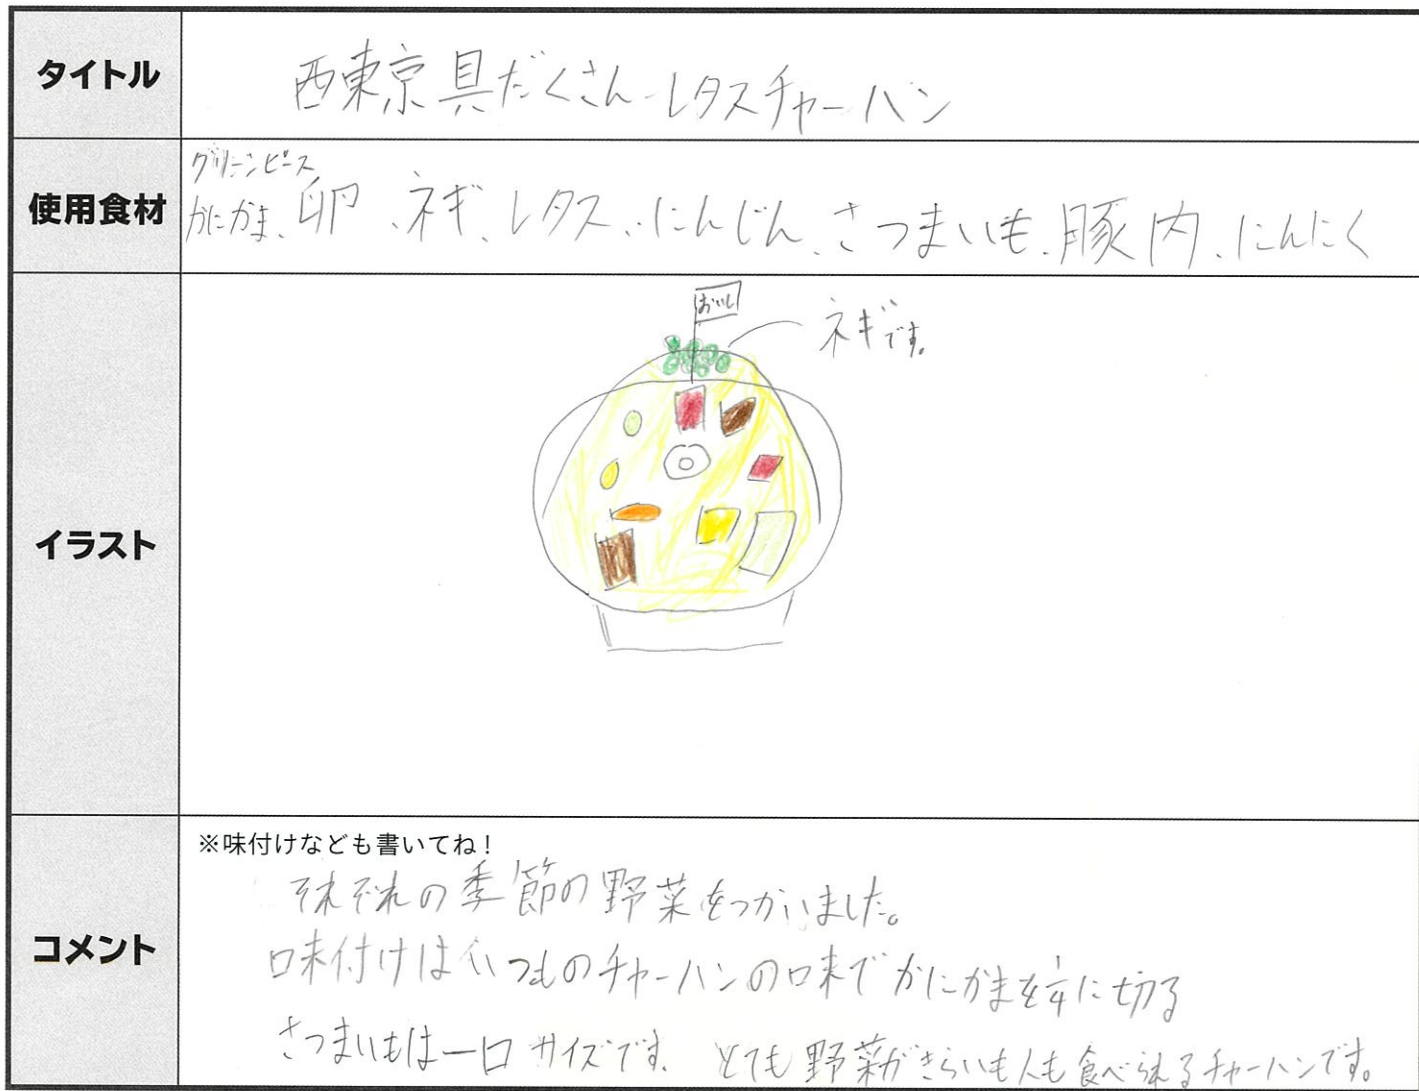 タイトル
西東京具だくさんレタスチャーハン
使用食材
グリーンピース
かにかま、卵、ネギ、レタス、にんじん、さつまいも、豚肉、にんにく
イラスト
おいし
ネギです。
コメント
※味付けなども書いてね！
それぞれの季節の野菜をつかいました。
味付けはいつものチャーハンの味でかにかまを1/4に切る
さつまいもは一口サイズです。とても野菜がきらいも人も食べられるチャーハンです。